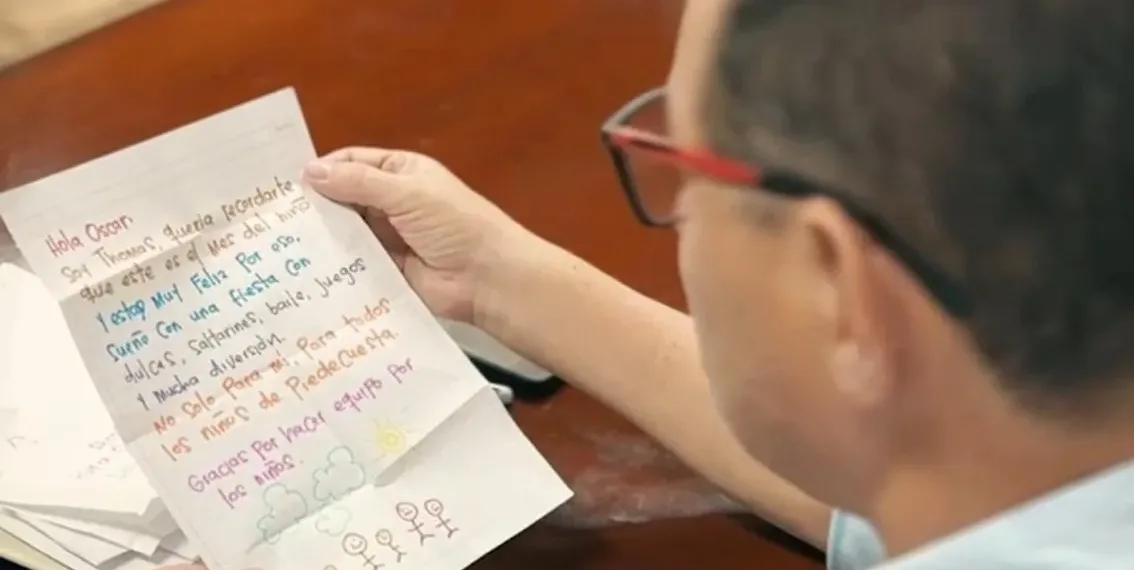 Hola Oscar,
Soy Thomas, quería recordarte
que este es el Mes del niño
Y estoy Muy Feliz Por eso,
Sueño Con una Fiesta Con
dulces, saltarines, baile, juegos
Y Mucha diversión.
No solo Para mi, Para todos
los niños de PiedeCuesta.
Gracias Por hacer equipo por
los niños.